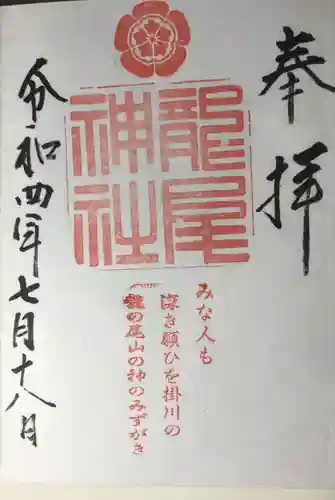 奉拝
龍尾神社
みな人も
深き願ひを掛川の
龍の尾山の神のみずがき
令和四年七月十八日